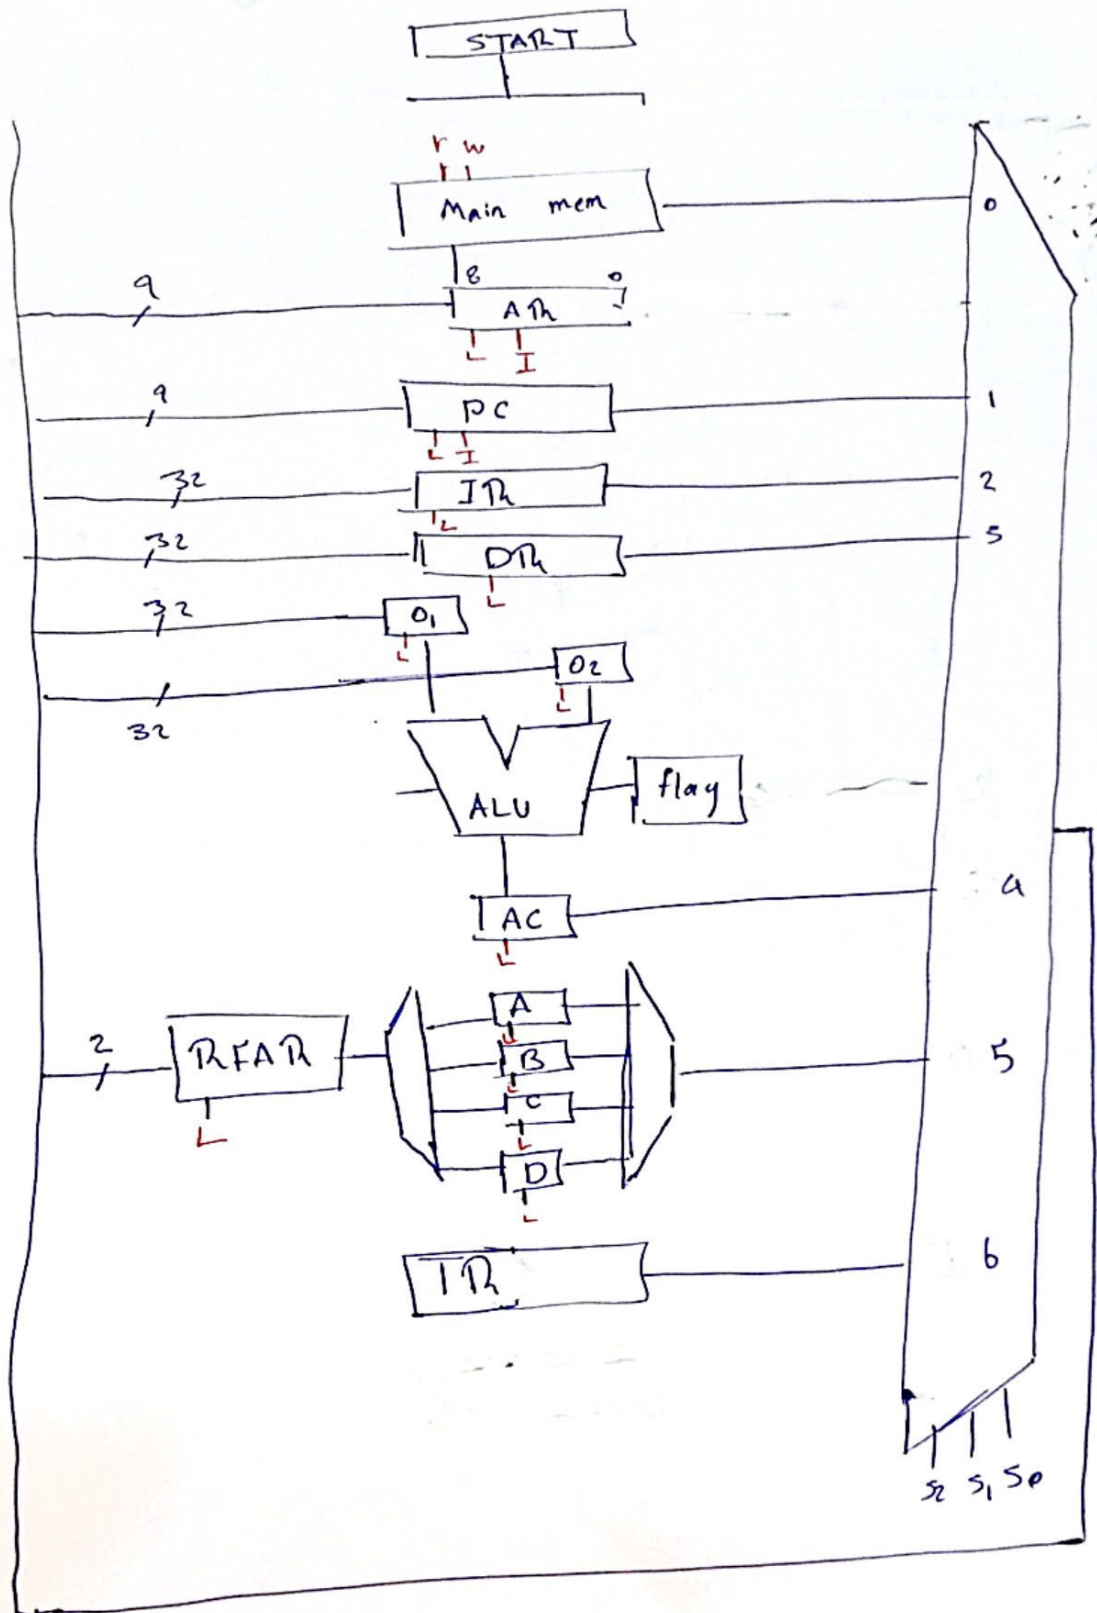 START
r w
Main mem 0
9 8 0
AR
L I
9 PC 1
L I
32 IR 2
L
32 DR 3
L
32 O1
L
O2
L
32
ALU flag
AC 4
L
A
L
2 RFAR B 5
L
L
C
L
D
L
TR 6
S2 S1 S0